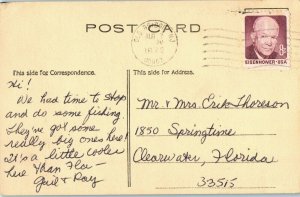 POST CARD
This side for Correspondence.
This side for Address.
EISENHOWER·USA
Hi!
We had time to stop
and do some fishing.
They've got some
really big ones here!
It's a little cooler
here than Fla—
Gail & Ray
Mr & Mrs Erik Thoreson
1850 Springtime
Clearwater, Florida
33515